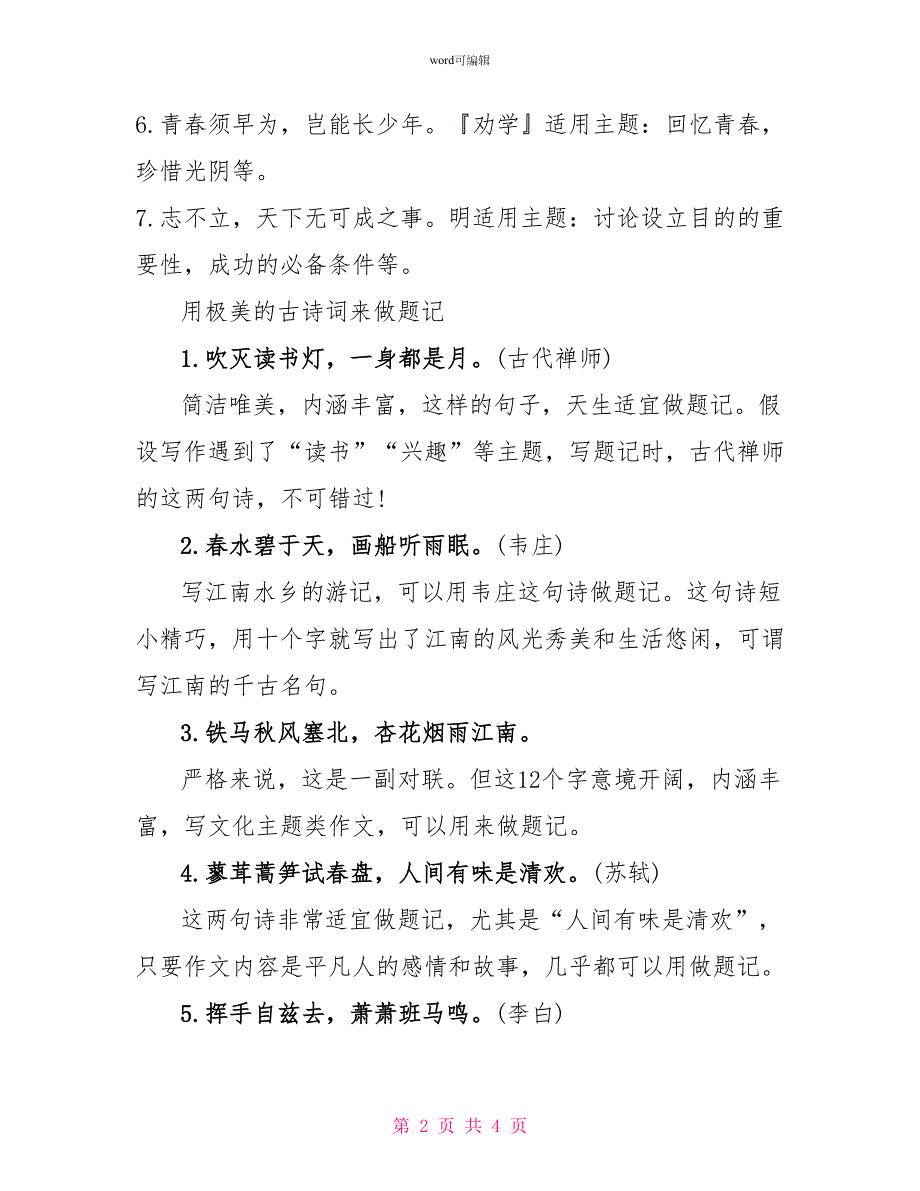 word可编辑
6.青春须早为，岂能长少年。『劝学』适用主题：回忆青春，
珍惜光阴等。
7.志不立，天下无可成之事。明适用主题：讨论设立目的的重
要性，成功的必备条件等。
用极美的古诗词来做题记
1.吹灭读书灯，一身都是月。(古代禅师)
简洁唯美，内涵丰富，这样的句子，天生适宜做题记。假
设写作遇到了“读书”“兴趣”等主题，写题记时，古代禅师
的这两句诗，不可错过!
2.春水碧于天，画船听雨眠。(韦庄)
写江南水乡的游记，可以用韦庄这句诗做题记。这句诗短
小精巧，用十个字就写出了江南的风光秀美和生活悠闲，可谓
写江南的千古名句。
3.铁马秋风塞北，杏花烟雨江南。
严格来说，这是一副对联。但这12个字意境开阔，内涵丰
富，写文化主题类作文，可以用来做题记。
4.蓼茸蒿笋试春盘，人间有味是清欢。(苏轼)
这两句诗非常适宜做题记，尤其是“人间有味是清欢”，
只要作文内容是平凡人的感情和故事，几乎都可以用做题记。
5.挥手自兹去，萧萧班马鸣。(李白)
第 2 页 共 4 页